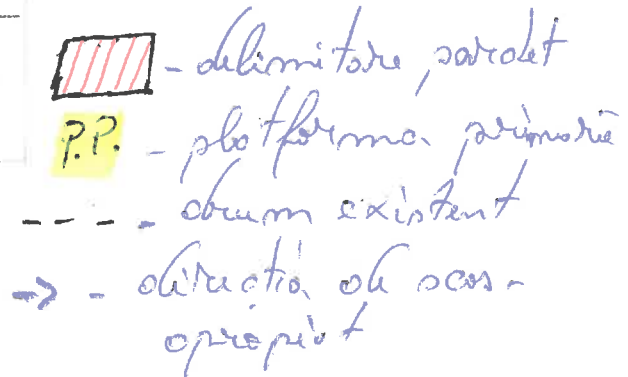 - delimitare parchet
P.P. - platforma primară
- drum existent
→ - direcția de scos-
apropiat